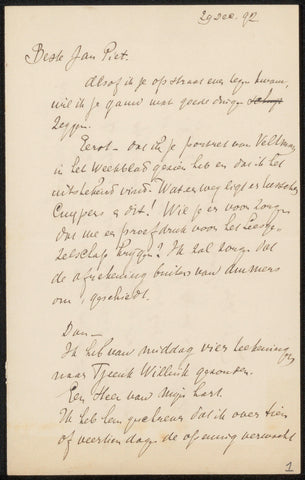 29 Dec. 92
Beste Jan Piet.
Alsof ik je op straat even tegen kwam,
wil ik je gauw wat goede dingen
zeggen.
Eerst – dat ik je portret van Veltman
in het Weekblad gezien heb en dat ik het
uitstekend vind. Wat er weg ligt is
Cuypers e dit! Wil je er voor zorgen
dat we een proefdruk voor het Leesge-
zelschap krijgen? Ik zal zorgen dat
de afrekening buiten van
om geschiedt.
Dan –
Ik heb van middag vier teekeningen
naar Tjeenk Willink gezonden.
Een Heer van mijn hart.
Ik heb hem geschreven dat ik over tien
of veertien dagen de opening verwacht
1